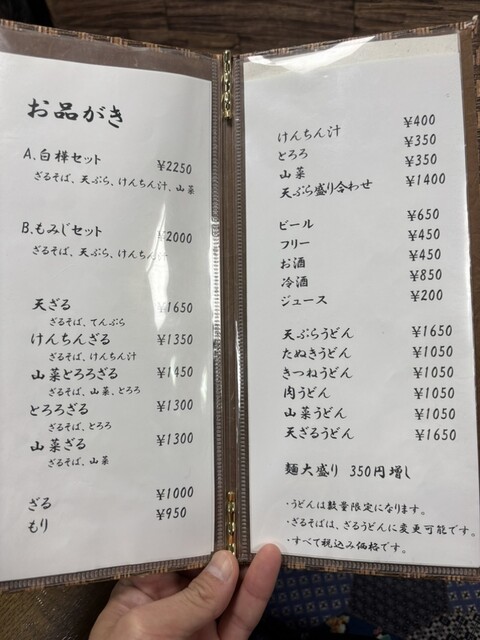 お品がき
A.白樺セット ¥2250
ざるそば、天ぷら、けんちん汁、山菜
B.もみじセット ¥2000
ざるそば、天ぷら、けんちん汁
天ざる ¥1650
ざるそば、てんぷら
けんちんざる ¥1350
ざるそば、けんちん汁
山菜とろろざる ¥1450
ざるそば、山菜、とろろ
とろろざる ¥1300
ざるそば、とろろ
山菜ざる ¥1300
ざるそば、山菜
ざる ¥1000
もり ¥950
けんちん汁 ¥400
とろろ ¥350
山菜 ¥350
天ぷら盛り合わせ ¥1400
ビール ¥650
フリー ¥450
お酒 ¥450
冷酒 ¥850
ジュース ¥200
天ぷらうどん ¥1650
たぬきうどん ¥1050
きつねうどん ¥1050
肉うどん ¥1050
山菜うどん ¥1050
天ざるうどん ¥1650
麺大盛り 350円増し
・うどんは数量限定になります。
・ざるそばは、ざるうどんに変更可能です。
・すべて税込み価格です。